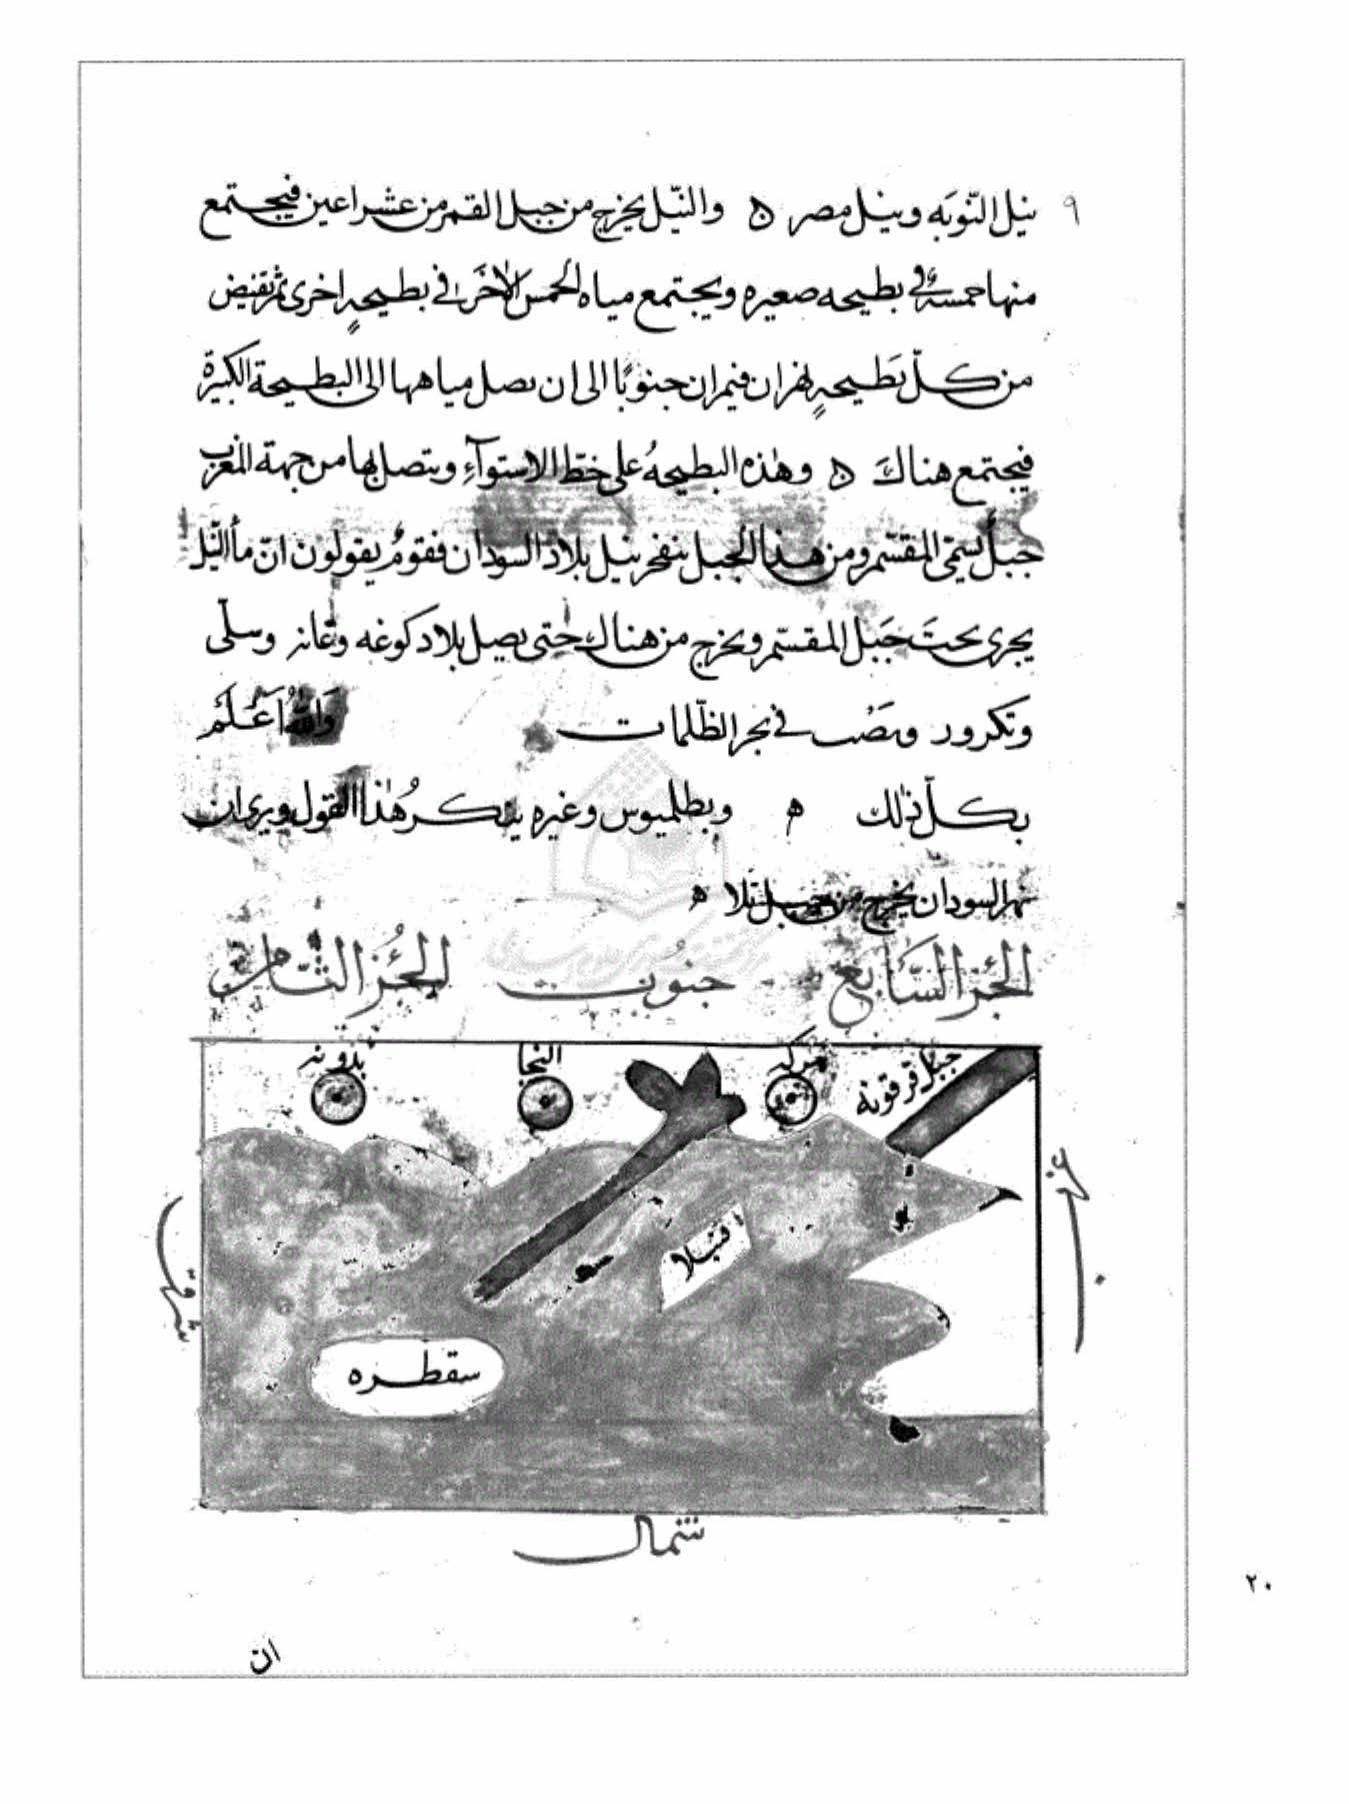 ٩
نيل النّوبه ونيل مصر ه والنّيل يخرج من جبل القمر من عشر اعين فيجتمع
منها خمسة في بطيحه صغيره ويجتمع مياه الخمس الاخر في بطيحهٍ اخرى ثمّ تفيض
من كلّ بَطيحهٍ نهران فيمران جنوبًا الى ان يصل مياهها الى البطيحة الكبيرة
فيجتمع هناك ه وهٰذه البطيحهُ على خطّ الاستوآءِ ويتصل بها من جهة المغرب
جبلٌ يسمّى المقسّم ومن هذا الجبل ينفجر نيل بلاد السودان فقومٌ يقولون انّ مأ النّيل
يجرى تحتَ جَبل المقسّم ويخرج من هناك حتى يصل بلاد كوغه وغانه وسلّى
وتكرور ويصُب في بحر الظّلمات وَاللهُ اَعْلَم
بكلّ ذٰلك ه وبطلميوس وغيره ينكرُ هٰذا القول ويرى ان
نهر السودان يخرج من جبل تلا ه
الجُزء السّابع جنوب الجُزء الثّامن
جبل قرقونه
مركه
النجا
بذونه
غرب
قنبلا
سقطره
شرق
شمال
ان
٢٠